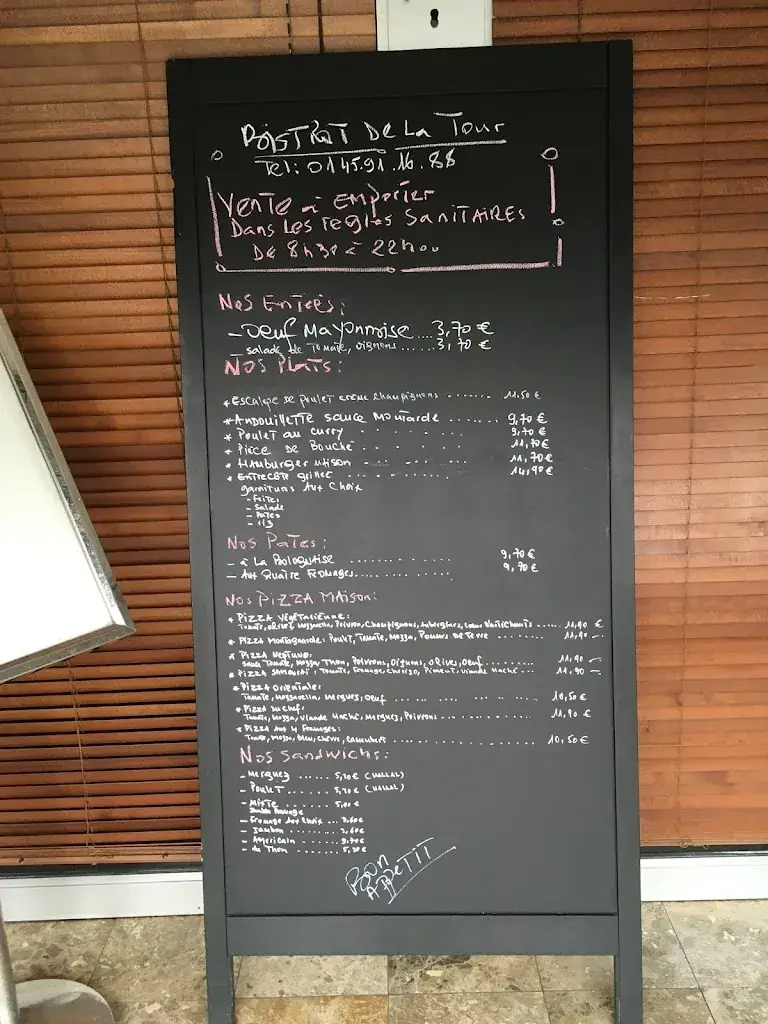 BISTROT De La Tour
Tel: 01 45.91.16.88
Vente à emporter
Dans Les règles SANITAIRES
De 8h30 à 22h00
Nos Entrées:
- Oeuf Mayonnaise ... 3,70 €
- Salade de Tomate, oignons ...... 3,70 €
NOS PLATS:
* Escalope de poulet crème champignons ....... 11.50 €
* Andouillette sauce Moutarde ....... 9,70 €
* Poulet au curry ....... 9,70 €
* Pièce De Bouché ....... 11,70 €
* Hamburger Maison ....... 11,70 €
* Entrecôte griller ....... 14,90 €
garnitures Aux choix
- Frites
- Salade
- Pates
- riz
Nos Pates:
- à La Bolognaise ....... 9,70 €
- Aux Quatre Fromages ....... 9,70 €
Nos PIZZA MAison:
* Pizza Végétarienne:
Tomate, olives, Mozzarella, Poivron, Champignons, Aubergines, Coeur D'artichauts ..... 11,90 €
* Pizza Montagnarde: Poulet, Tomate, Mozza, Pommes De Terre ....... 11,90 -
* Pizza Neptune:
Sauce Tomate, Mozza, Thon, Poivrons, Oignons, Olives, Oeuf ....... 11,90 -
* Pizza : Tomate, Fromage, Chorizo, Piment, Viande Haché ... 11,90 -
* Pizza Orientale:
Tomate, Mozzarella, Mergues, Oeuf ....... 10,50 €
* Pizza du chef:
Tomate, Mozza, Viande Haché, Mergues, Poivrons ....... 11,90 €
* Pizza Aux 4 Fromages:
Tomate, Mozza, Bleu, Chèvre, Camembert ....... 10,50 €
Nos Sandwichs:
- Merguez ...... 5,20 € (HALLAL)
- Poulet ....... 5,20 € (HALLAL)
- Mixte ....... 5,00 €
Jambon Fromage
- Fromage Aux Choix ... 3,60 €
- Jambon ........ 3,60 €
- Americain ........ 5,70 €
- Au Thon ........ 5,20 €
Bon
APPETIT